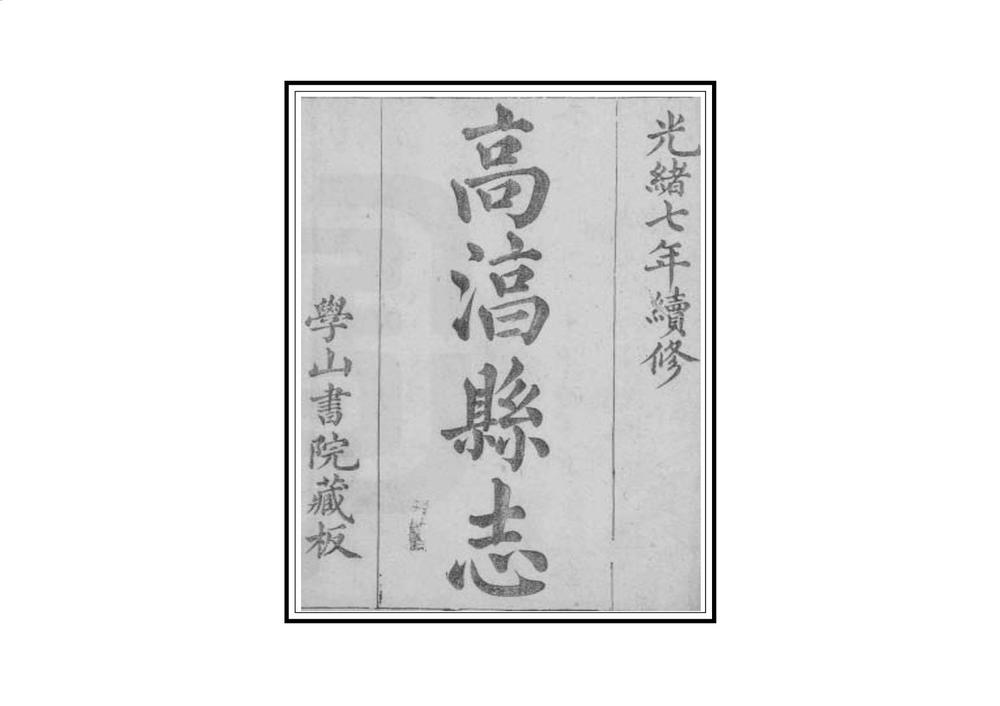 光緒七年續修
高湻縣志
學山書院藏板